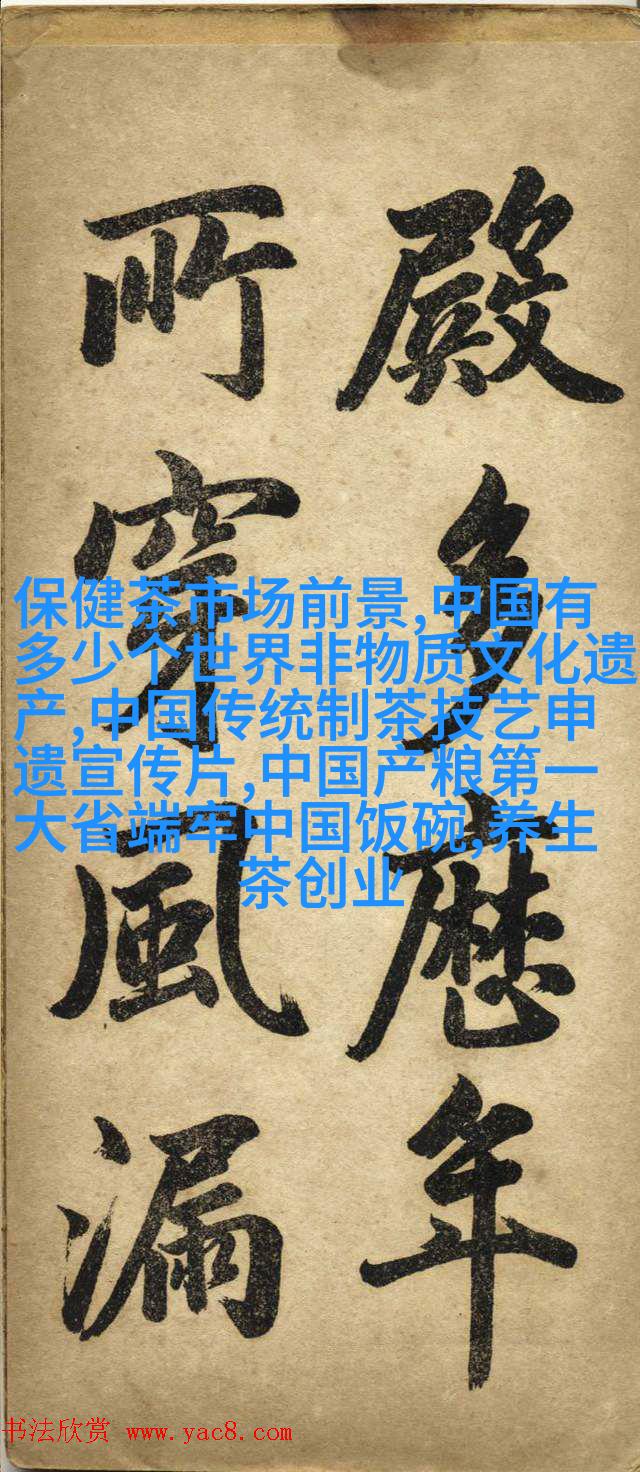 殿多歷年
所穿風漏
保健茶市场前景,中国有
多少个世界非物质文化遗
产,中国传统制茶技艺申
遗宣传片,中国产粮第一
大省端牢中国饭碗,养生
茶创业
书法欣赏 www.yac8.com